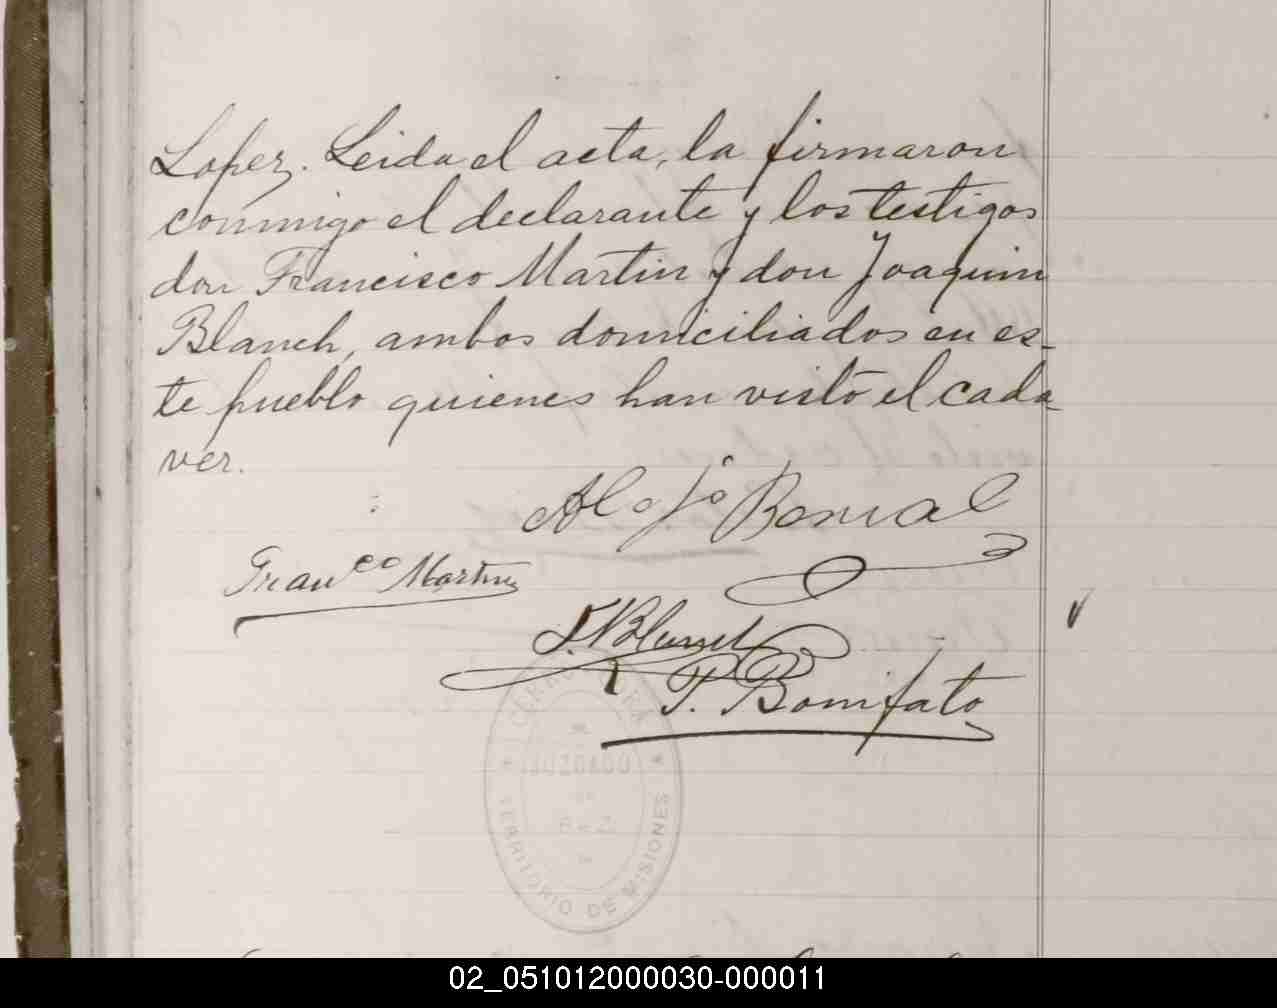 Lopez. Leida el acta, la firmaron
conmigo el declarante y los testigos
don Francisco Martin y don Joaquin
Blanch, ambos domiciliados en es-
te pueblo quienes han visto el cada-
ver.
Alejo
Fran<sup>co</sup> Martin
J. Blanch
P. Bonifato
CERRO
JUZGADO
TERRITORIO DE MISIONES
02_051012000030-000011